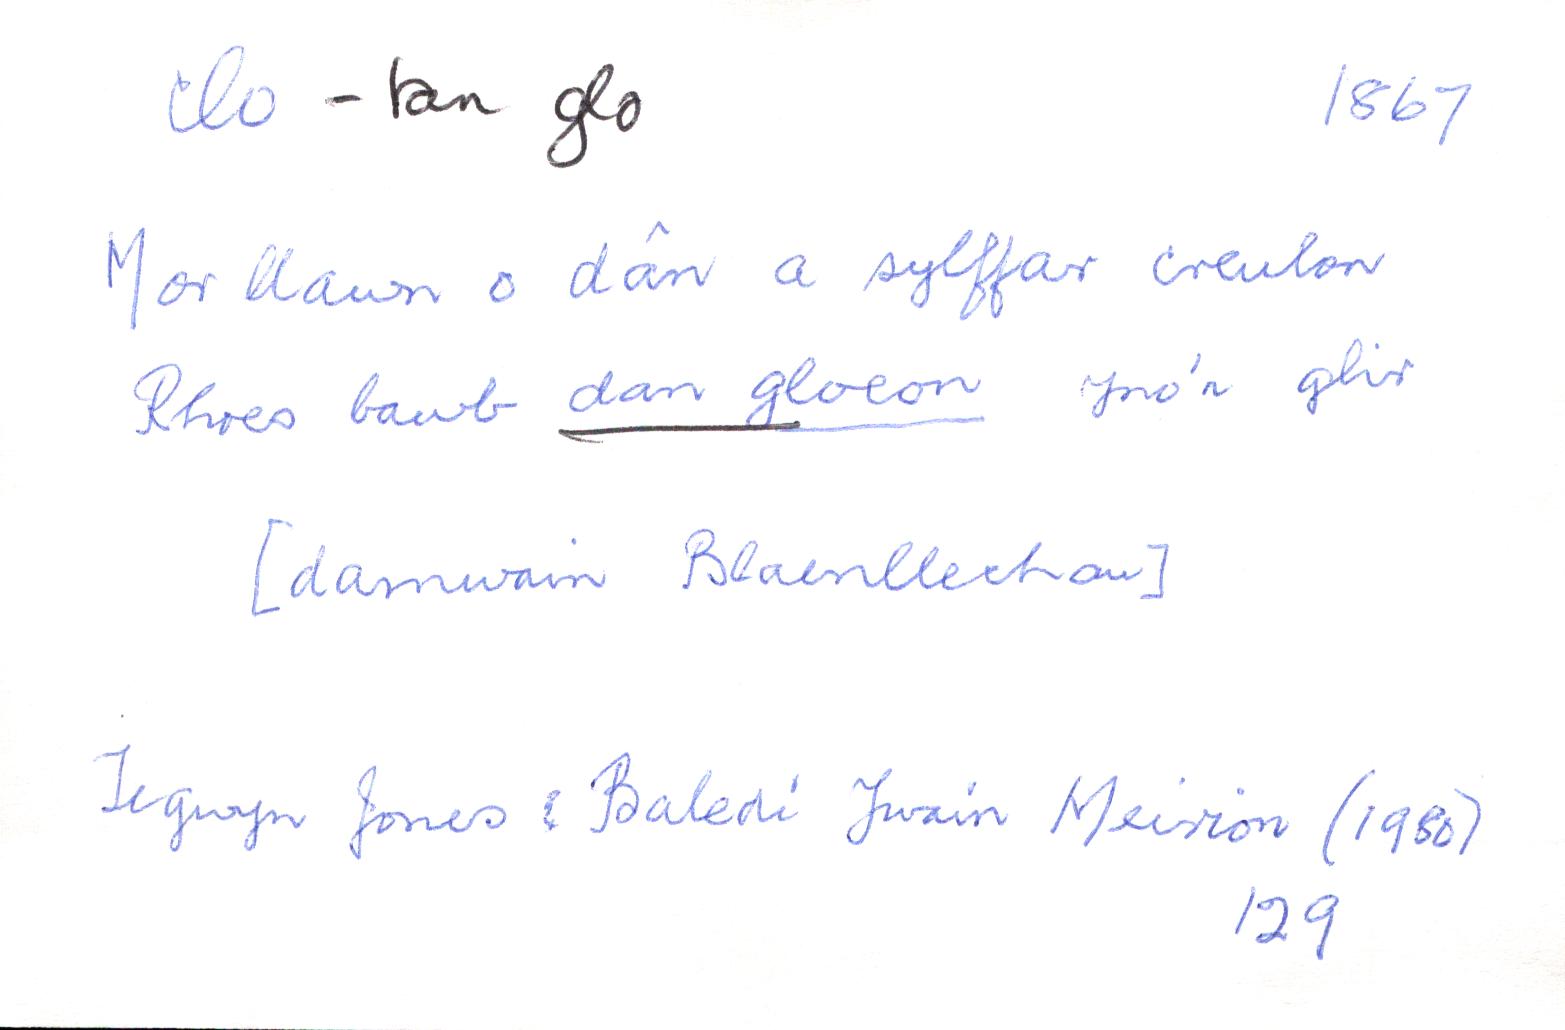 clo - tan glo 1867
Mor llawn o dân a sylffar creulon
Rhoes bawb dan gloeon yno'n glir
[damwain Blaenllechau]
Tegwyn Jones : Baledi Ywain Meirion (1980)
129